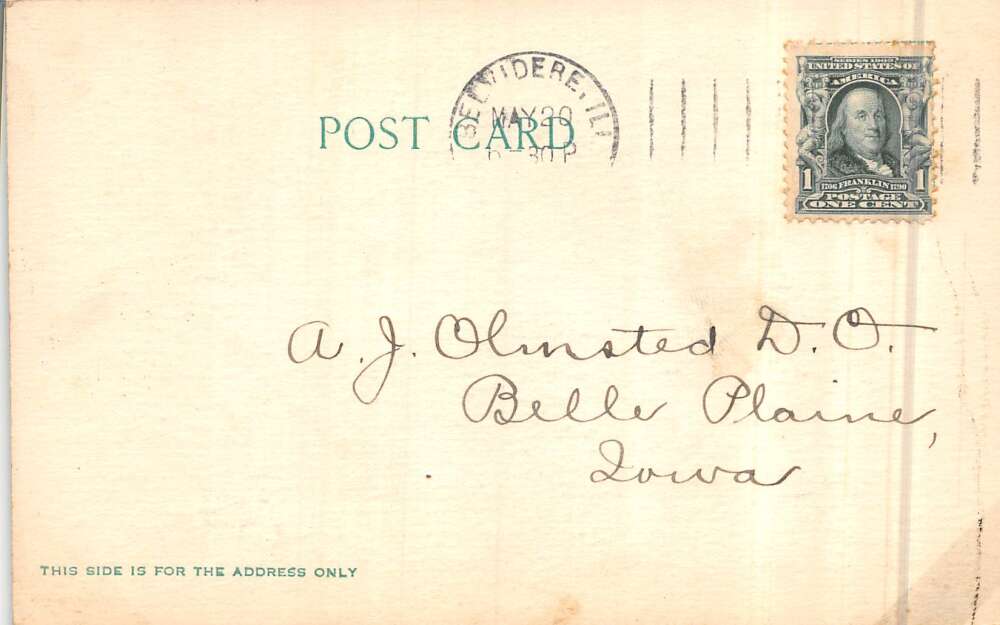 BELVIDERE, ILL
MAY 20
30 P
POST CARD
SERIES 1902
UNITED STATES OF
AMERICA
1 1706 FRANKLIN 1790 1
POSTAGE
ONE CENT
A. J. Olmsted D. O.
Belle Plaine,
Iowa
THIS SIDE IS FOR THE ADDRESS ONLY